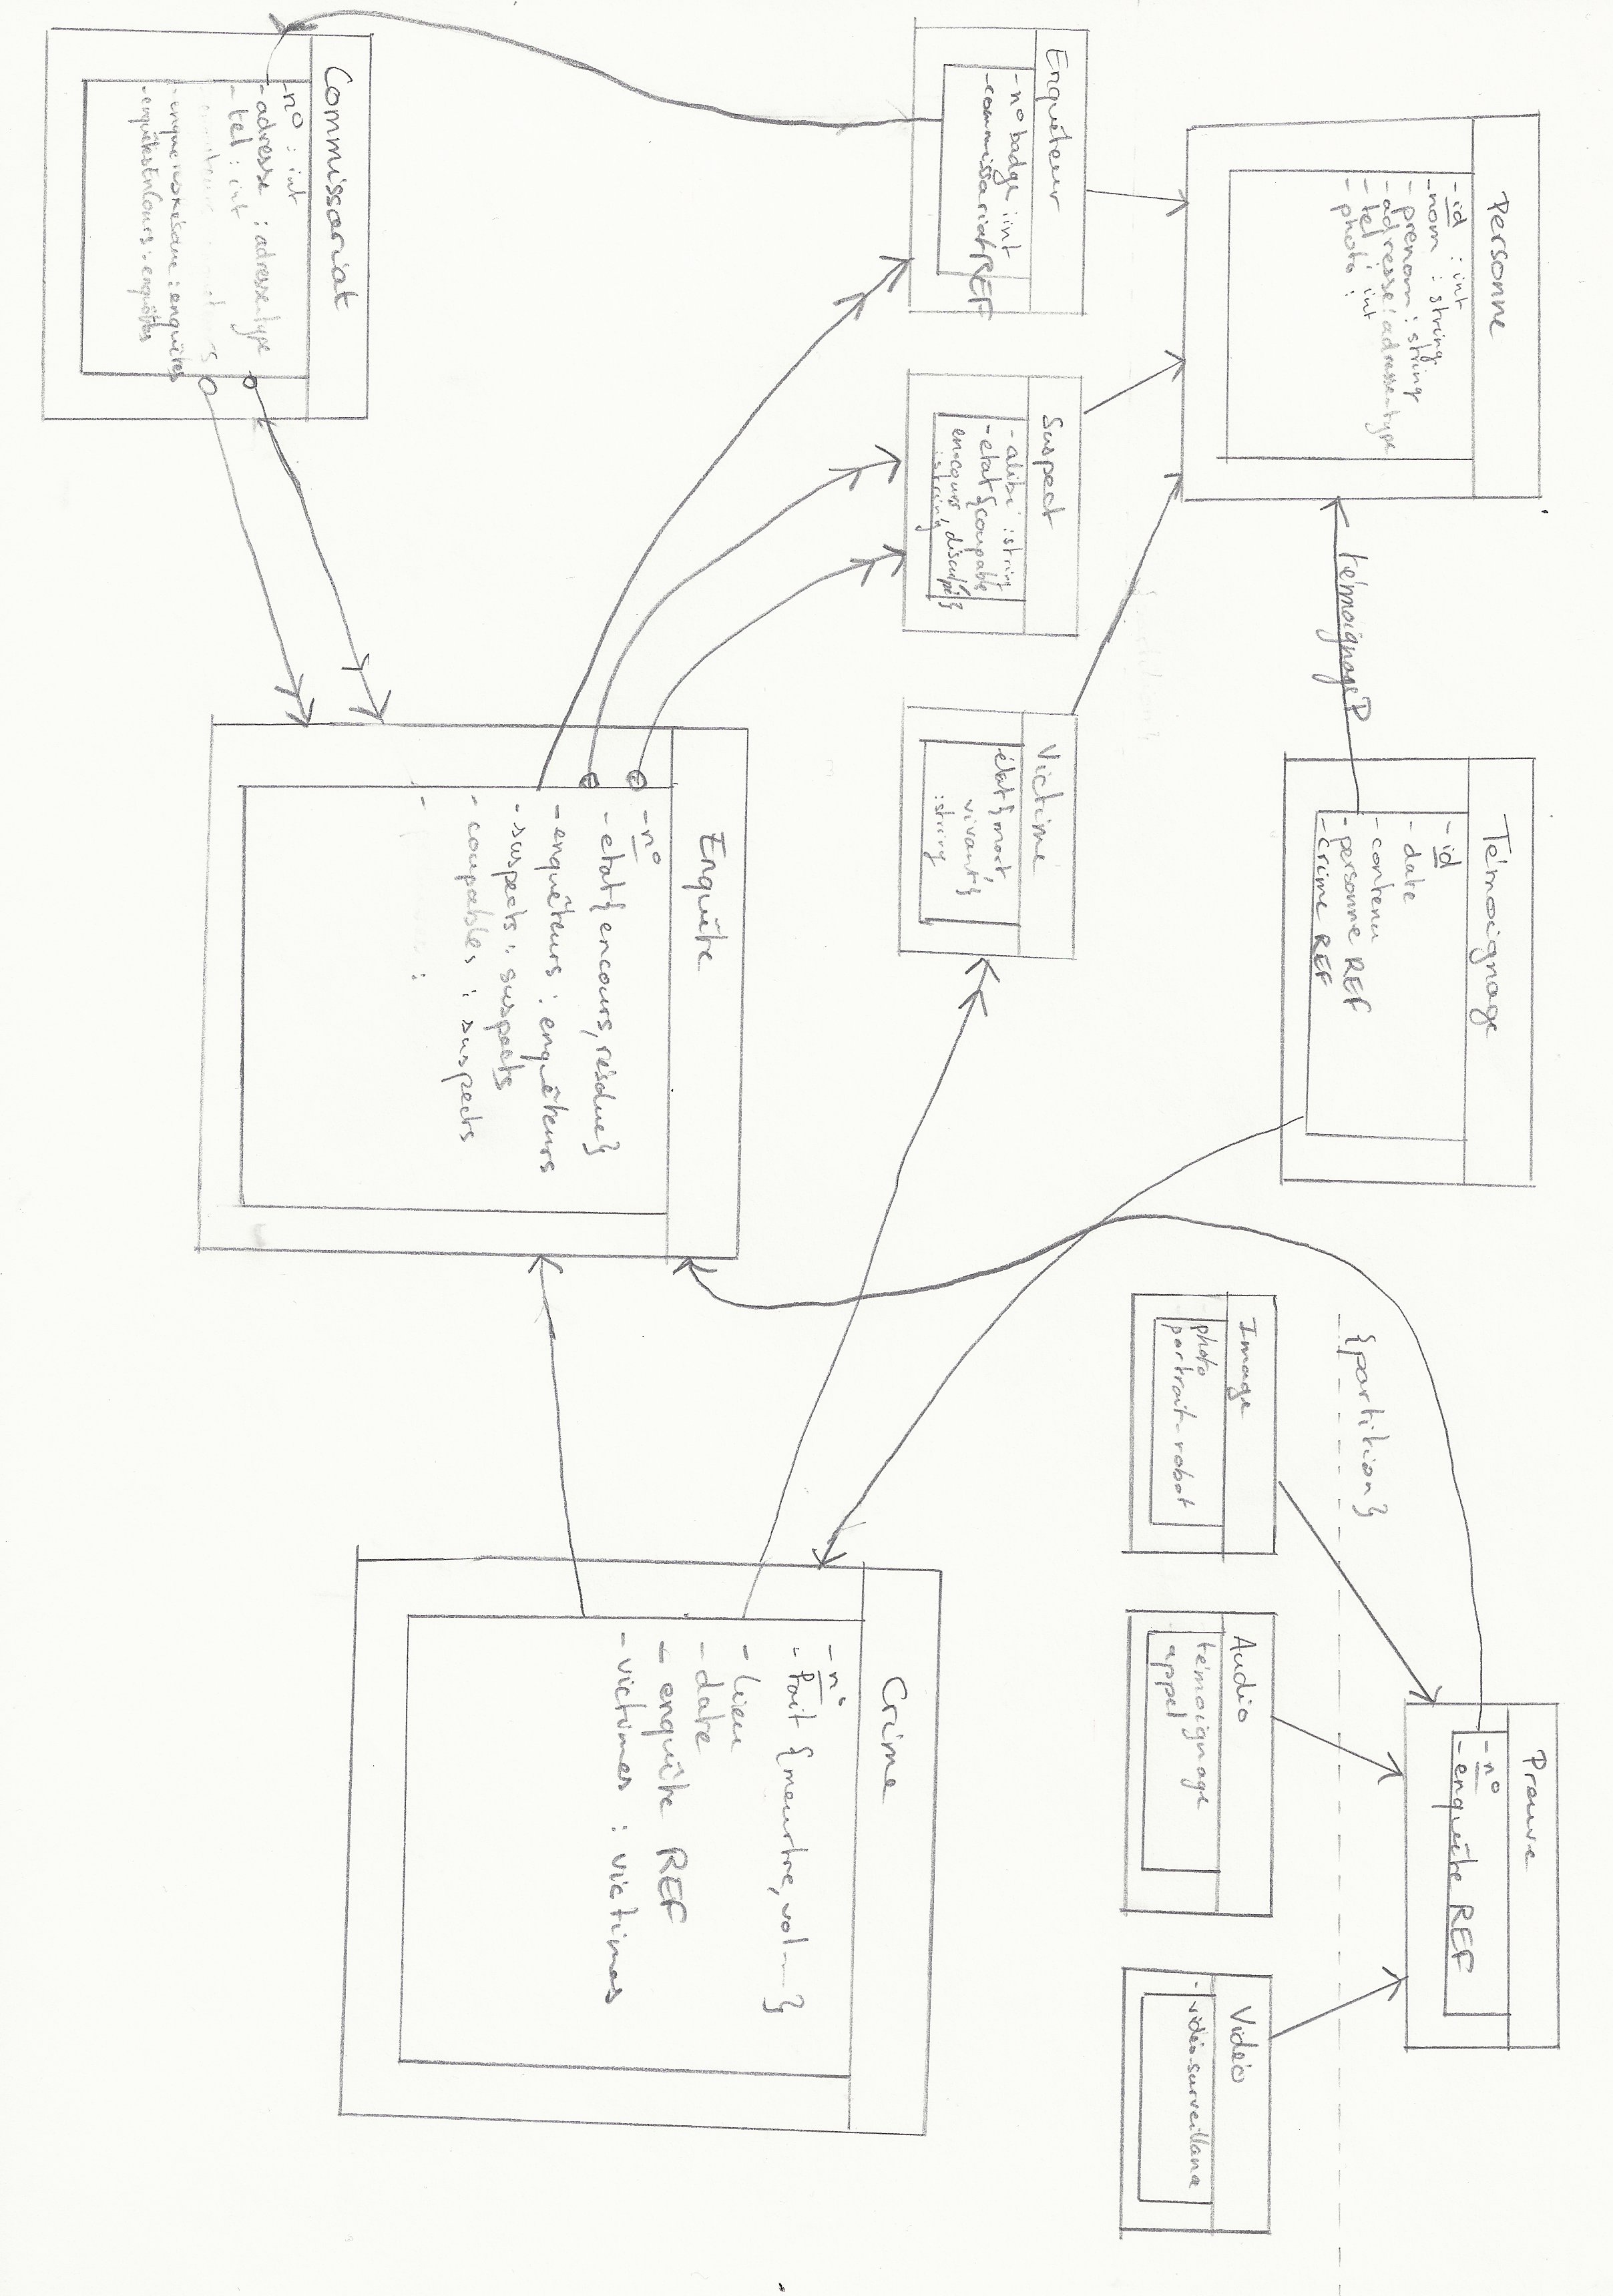 Personne
- id : int
- nom : string
- prenom : string
- adresse : adresse-type
- tel : int
- photo :
témoignageP
Témoignage
- id
- date
- contenu
- personne REF
- crime REF
Preuve
- n°
- enquête REF
{partition}
Image
photo
portrait-robot
Audio
témoignage
appel
Vidéo
- vidéo-surveillance
{partition}
Enquêteur
- n° badge : int
- commissariat REF
Suspect
- alibi : string
- etat {coupable,
en-cours, disculpé}
: string
Victime
- état {mort,
vivant}
: string
Crime
- n°
- Fait {meurtre, vol ---}
- lieu
- date
- enquête REF
- victimes : victimes
Enquête
- n°
- etat {encours, résolue}
- enquêteurs : enquêteurs
- suspects : suspects
- coupables : suspects
- :
Commissariat
- n° : int
- adresse : adresse-type
- tel : int
- enquetesResolue : enquêtes
- enquêtesEnCours : enquêtes